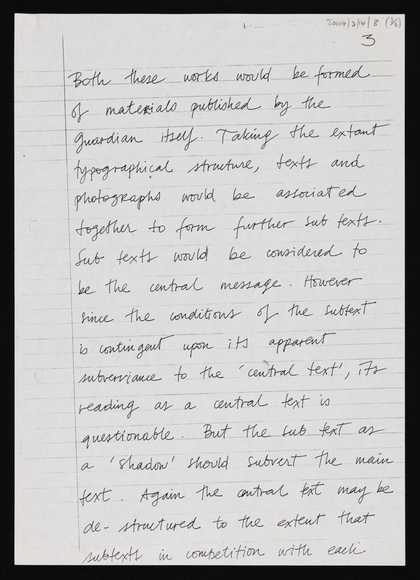 2004/2/4/8 (3/5)
3
Both these works would be formed
of materials published by the
Guardian itself. Taking the extant
typographical structure, texts and
photographs would be associated
together to form further sub texts.
Sub texts would be considered to
be the central message. However
since the conditions of the subtext
is contingent upon its apparent
subserviance to the 'central text', its
reading as a central text is
questionable. But the sub text as
a 'shadow' should subvert the main
text. Again the central text may be
de-structured to the extent that
subtexts in competition with each